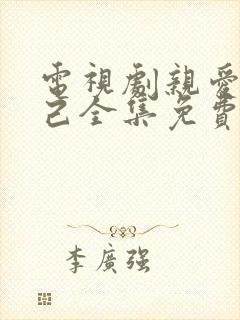 電視劇親愛
己全集免費
李廣強